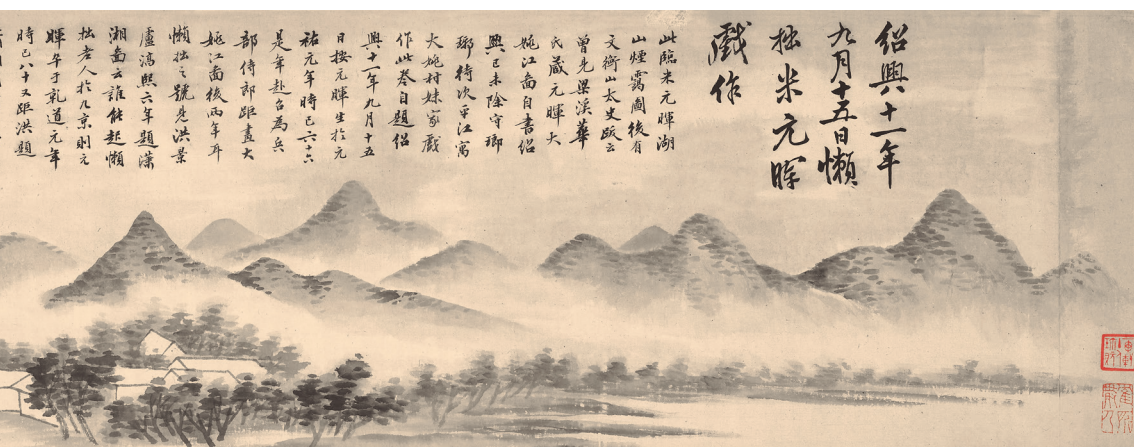 紹興十一年
九月十五日懶
拙米元暉
戲作
此臨米元暉湖
山煙靄圖後有
文衡山太史跋云
曾見梁溪華
氏藏元暉大
姚江啚自書紹
興己未除守瑯
瑯待次平江寓
大姚村妹家戲
作此卷自題紹
興十一年九月十五
日按元暉生於元
祐元年時已六十六
是年赴召為兵
部侍郎距畫大
姚江啚後兩年耳
懶拙之號見洪景
盧鴻熙六年題瀟
湘啚云誰能起懶
拙老人於九京則元
暉卒于乾道元年
時已八十又距洪題